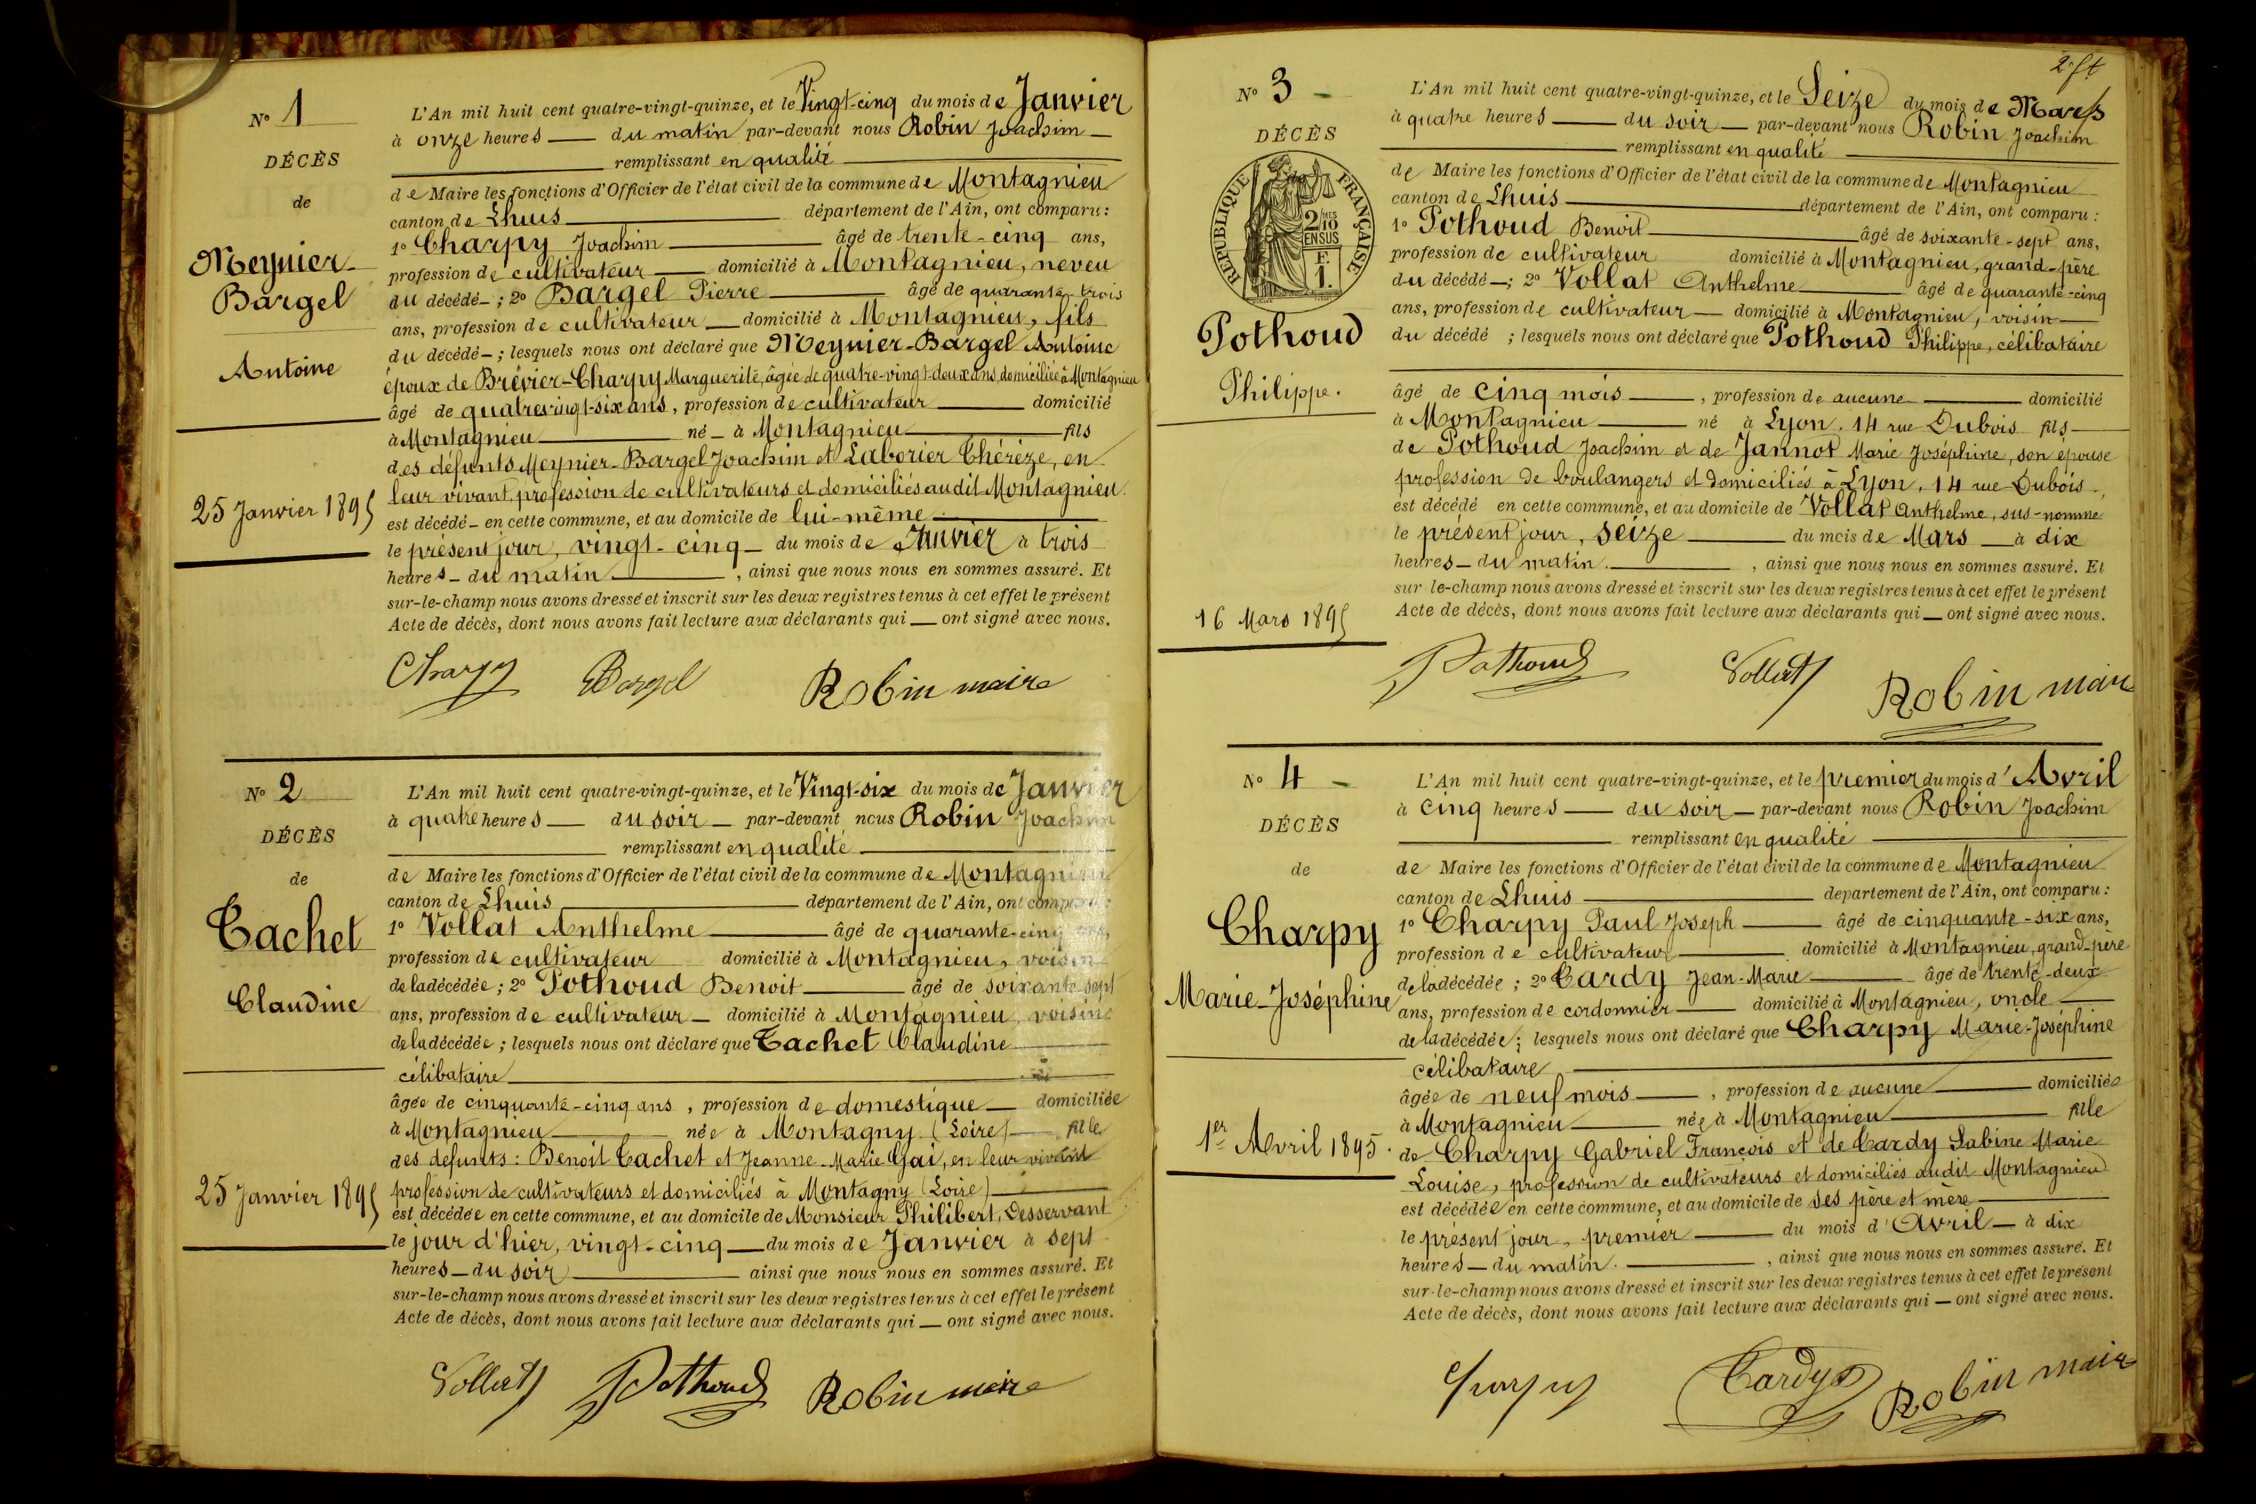 Nº 1
DÉCÈS
de
Meynier-
Bargel
Antoine
25 Janvier 1895
L'An mil huit cent quatre-vingt-quinze, et le Vingt-cinq du mois de Janvier
à onze heures — du matin par-devant nous Robin Joachim —
remplissant en qualité
de Maire les fonctions d'Officier de l'état civil de la commune de Montagnieu
canton de Lhuis — département de l'Ain, ont comparu :
1º Charpy Joachim — âgé de trente-cinq ans,
profession de cultivateur — domicilié à Montagnieu, neveu
du décédé — ; 2º Bargel Pierre — âgé de quarante-trois
ans, profession de cultivateur — domicilié à Montagnieu, fils
du décédé — ; lesquels nous ont déclaré que Meynier-Bargel Antoine
époux de Brévier-Charpy Marguerite, âgée de quatre-vingt-deux ans, domiciliée à Montagnieu
âgé de quatrevingt-six ans, profession de cultivateur — domicilié
à Montagnieu — né — à Montagnieu — fils
des défunts Meynier-Bargel Joachim et Laborier Thérèze, en
leur vivant profession de cultivateurs et domiciliés audit Montagnieu.
est décédé — en cette commune, et au domicile de lui-même
le présent jour, vingt-cinq — du mois de Janvier à trois
heures — du matin —, ainsi que nous nous en sommes assuré. Et
sur-le-champ nous avons dressé et inscrit sur les deux registres tenus à cet effet le présent
Acte de décès, dont nous avons fait lecture aux déclarants qui — ont signé avec nous.
Charpy Bargel Robin maire
Nº 2
DÉCÈS
de
Tachet
Claudine
25 Janvier 1895
L'An mil huit cent quatre-vingt-quinze, et le Vingt-six du mois de Janvier
à quatre heures — du soir — par-devant nous Robin Joachim
remplissant en qualité
de Maire les fonctions d'Officier de l'état civil de la commune de Montagnieu
canton de Lhuis — département de l'Ain, ont comparu :
1º Vollat Anthelme — âgé de quarante-cinq ans,
profession de cultivateur domicilié à Montagnieu, voisin
de la décédée ; 2º Pothoud Benoit — âgé de soixante-sept
ans, profession de cultivateur — domicilié à Montagnieu, voisin
de la décédée ; lesquels nous ont déclaré que Tachet Claudine
célibataire
âgée de cinquante-cinq ans, profession de domestique — domiciliée
à Montagnieu — née à Montagny (Loire) — fille
des défunts : Benoit Tachet et Jeanne-Marie Gai, en leur vivant
profession de cultivateurs et domiciliés à Montagny (Loire)
est décédée en cette commune, et au domicile de Monsieur Philibert, Desservant
le jour d'hier, vingt-cinq — du mois de Janvier à sept
heures — du soir — ainsi que nous nous en sommes assuré. Et
sur-le-champ nous avons dressé et inscrit sur les deux registres tenus à cet effet le présent
Acte de décès, dont nous avons fait lecture aux déclarants qui — ont signé avec nous.
Vollat Pothoud Robin maire
Nº 3
DÉCÈS
RÉPUBLIQUE FRANÇAISE
2/10 MES
EN SUS
F.
1.
Pothoud
Philippe.
16 Mars 1895
L'An mil huit cent quatre-vingt-quinze, et le Seize du mois de Mars
à quatre heures — du soir — par-devant nous Robin Joachim
remplissant en qualité
de Maire les fonctions d'Officier de l'état civil de la commune de Montagnieu
canton de Lhuis — département de l'Ain, ont comparu :
1º Pothoud Benoit — âgé de soixante-sept ans,
profession de cultivateur domicilié à Montagnieu, grand-père
du décédé — ; 2º Vollat Anthelme — âgé de quarante-cinq
ans, profession de cultivateur — domicilié à Montagnieu, voisin
du décédé ; lesquels nous ont déclaré que Pothoud Philippe, célibataire
âgé de cinq mois —, profession de aucune — domicilié
à Montagnieu — né à Lyon, 14 rue Dubois fils
de Pothoud Joachim et de Jannot Marie Joséphine, son épouse
profession de boulangers et domiciliés à Lyon, 14 rue Dubois.
est décédé en cette commune, et au domicile de Vollat Anthelme, sus-nommé
le présent jour, seize — du mois de Mars — à dix
heures — du matin. —, ainsi que nous nous en sommes assuré. Et
sur-le-champ nous avons dressé et inscrit sur les deux registres tenus à cet effet le présent
Acte de décès, dont nous avons fait lecture aux déclarants qui — ont signé avec nous.
Pothoud Vollat Robin maire
Nº 4
DÉCÈS
de
Charpy
Marie-Joséphine
1er Avril 1895.
L'An mil huit cent quatre-vingt-quinze, et le premier du mois d'Avril
à cinq heures — du soir — par-devant nous Robin Joachim
remplissant en qualité
de Maire les fonctions d'Officier de l'état civil de la commune de Montagnieu
canton de Lhuis — département de l'Ain, ont comparu :
1º Charpy Paul Joseph — âgé de cinquante-six ans,
profession de cultivateur — domicilié à Montagnieu, grand-père
de la décédée ; 2º Cardy Jean-Marie — âgé de trente-deux
ans, profession de cordonnier — domicilié à Montagnieu, oncle
de la décédée ; lesquels nous ont déclaré que Charpy Marie-Joséphine
célibataire
âgée de neuf mois —, profession de aucune — domiciliée
à Montagnieu — née à Montagnieu — fille
de Charpy Gabriel François et de Cardy Sabine Marie
Louise, profession de cultivateurs et domiciliés audit Montagnieu
est décédée en cette commune, et au domicile de ses père et mère
le présent jour, premier — du mois d'Avril — à dix
heures — du matin. —, ainsi que nous nous en sommes assuré. Et
sur-le-champ nous avons dressé et inscrit sur les deux registres tenus à cet effet le présent
Acte de décès, dont nous avons fait lecture aux déclarants qui — ont signé avec nous.
Charpy Cardy Robin maire